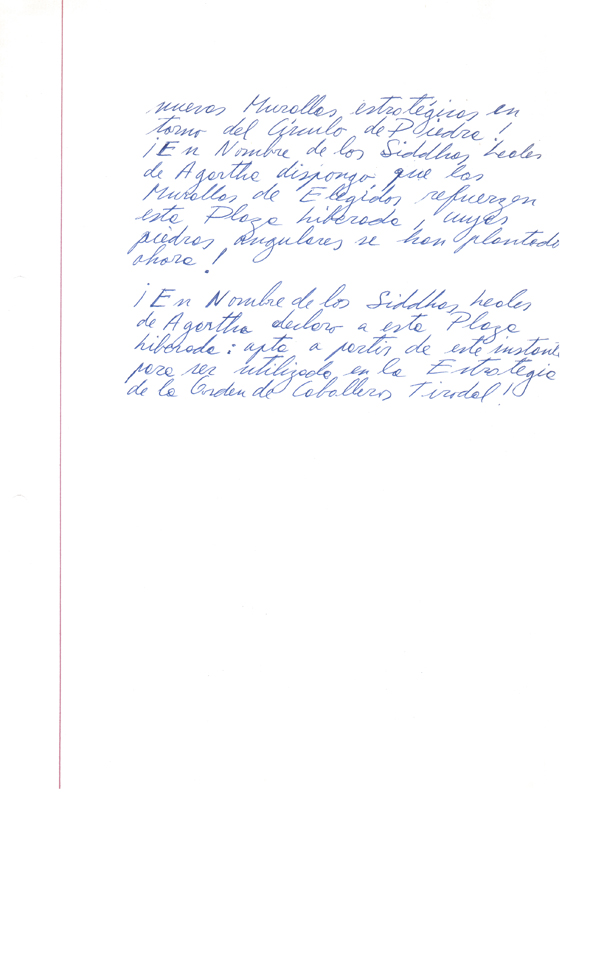 nuevas Murallas estratégicas en
torno del Círculo de Piedra!
¡En Nombre de los Siddhas Leales
de Agartha dispongo que las
Murallas de Elegidos refuerzen
esta Plaza Liberada, cuyas
piedras angulares se han plantado
ahora!
¡En Nombre de los Siddhas Leales
de Agartha declaro a esta Plaza
Liberada: apta a partir de este instante
para ser utilizada en la Estrategia
de la Orden de Caballeros Tirodal!